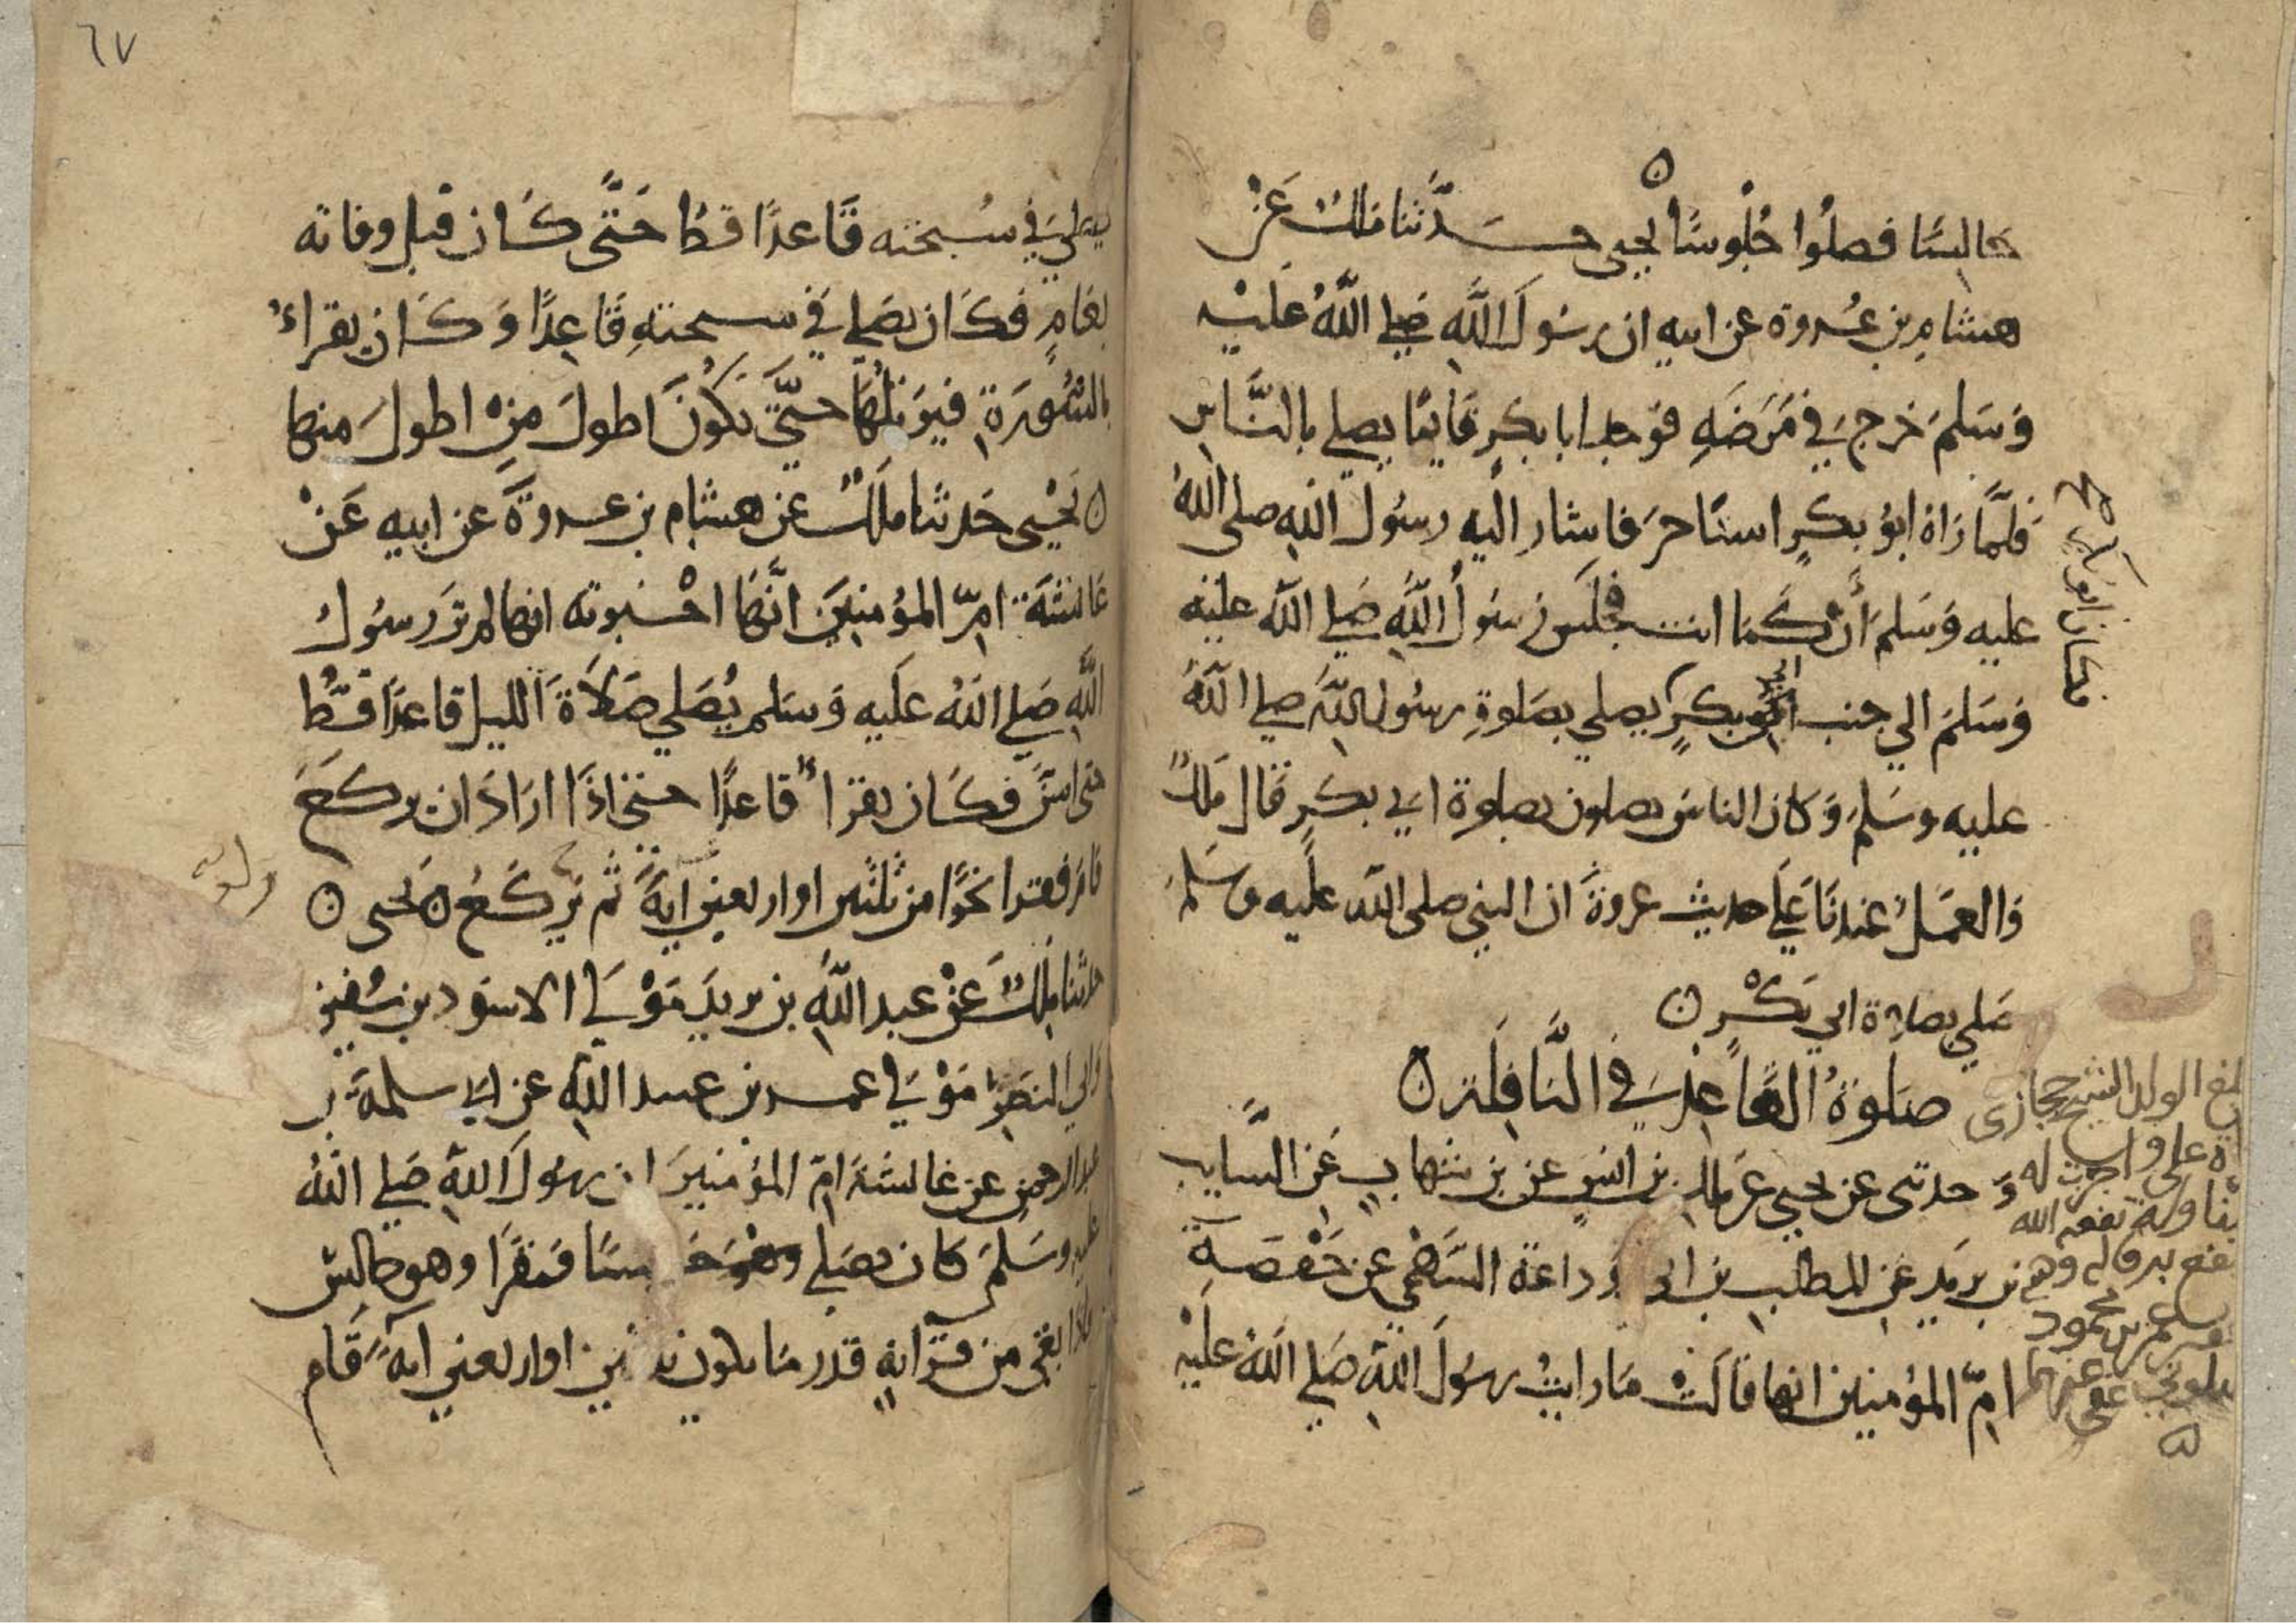 جالسًا فصلوا جُلُوسًا يحيى حدَّثنا ملك عَنْ
هشام بن عُروة عن ابيه ان رسُولَ اللَّهِ صَلي اللَّهُ عَلَيْه
وَسَلمَ خرج في مَرَضَهِ فوجد ابا بكرٍ قايمًا يصلي بالنَّاس
فلمَّا رَاهُ ابوُ بكرٍ استاخرَ فاشار اليه رسُول الله صلى اللهُ
عليه وَسَلمَ أنْ كَمَا انت فجلَسَ رسُولُ اللَّهِ صَلي الله عليْه
وَسَلمَ الي جنب ابوُ بكرٍ يصلي بصَلوةِ رسُول اللهِ صلي اللهُ
عليه وسَلمَ وَكان الناسُ يصلون بصلوة ابي بكرٍ قال مَلكٌ
وَالعمَلُ عندنَا عَلَي حديث عروةَ ان النبي صلى الله عليه وسَلمَ
صَلي بصلوة ابي بَكْرٍ ه
صَلوةُ القَاعِدِ في النَّافِلَة ه
وَحدثني عن يحيى عن مالك بن انسٍ عن بن شهابٍ عَن السَّايب
بن يزيد عن المطلب بن ابي وَداعة السَّهْمي عن حَفْصَة
امّ المؤمنين انها قالتْ مَا رايتُ رسُولَ اللهِ صَلي اللهُ عَلَيْهِ
فكان ابو بكر
الولد الشيخ حجازي
علي واجزت له
نفعه الله
محمود
عفي عنهما
٦٧
يصلي في سُبحته قَاعدًا قطُ حَتَّى كَان قبل وفاته
بعَامٍ فكَان يصَلي في سبحتهِ قَاعِدًا وَكَان يقراءُ
بالسُّورَةِ فيرَتلُهَا حتَّي تكوُنَ اطولَ مِنْ اطولَ منها
ه يَحْيى حَدثنا ملك عن هشام بن عروةَ عن ابيه عَنْ
عَائشَةَ امّ المؤمنينَ انَّهَا اخْبرته انها لم تَرَ رسُول
اللَّهِ صَلي اللهُ عَلَيه وَسَلم يُصَلي صَلاَةَ الليل قاعدًا قَطُّ
حتى اسَنَّ فكَان يقرأُ قاعدًا حتى اذَا ارَادَ ان يركَعَ
قامَ فقرا نحوًا من ثَلثين او اربعين ايةً ثم يَركَعُ ه يَحيى ه
حدثنا ملكٌ عنْ عبد اللهِ بن يزيدَ مَوْلَي الاسوَد بن سُفين
وَابي النضر مَوْلَي عمر بن عبيد اللهِ عن ابي سلمةَ بن
عبد الرحمنِ عن عَائشةَ امّ المؤمنينَ ان رسُولَ اللهِ صَلي اللهُ
عليه وسَلمَ كان يصَلي جالسًا فيقرَا وهو جالسٌ
فاذا بقيَ من قرَآنهِ قدر مَا يكون ثلاثين او اربعين ايةً قَام